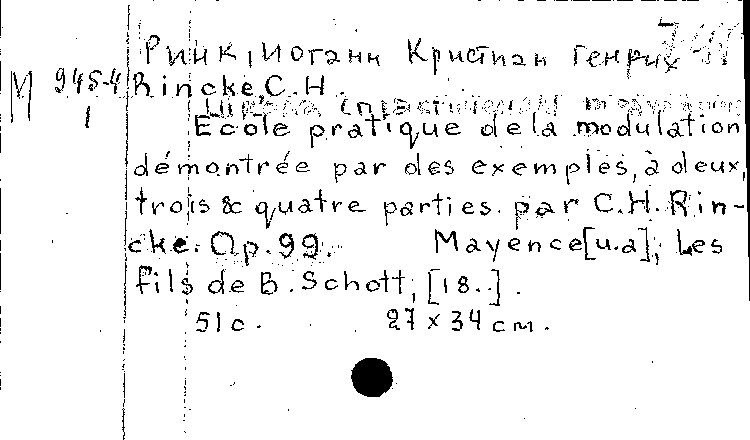 Ринк, Иоганн Кристиан Генрих
М 945-4 Rincke, C.H.
1
Ecole pratique de la modulation
démontrée par des exemples, à deux,
trois & quatre parties par C.H. Rin-
cke. Op. 99. Mayence [u.a], Les
fils de B. Schott, [18..].
51 c. 27 x 34 cm.